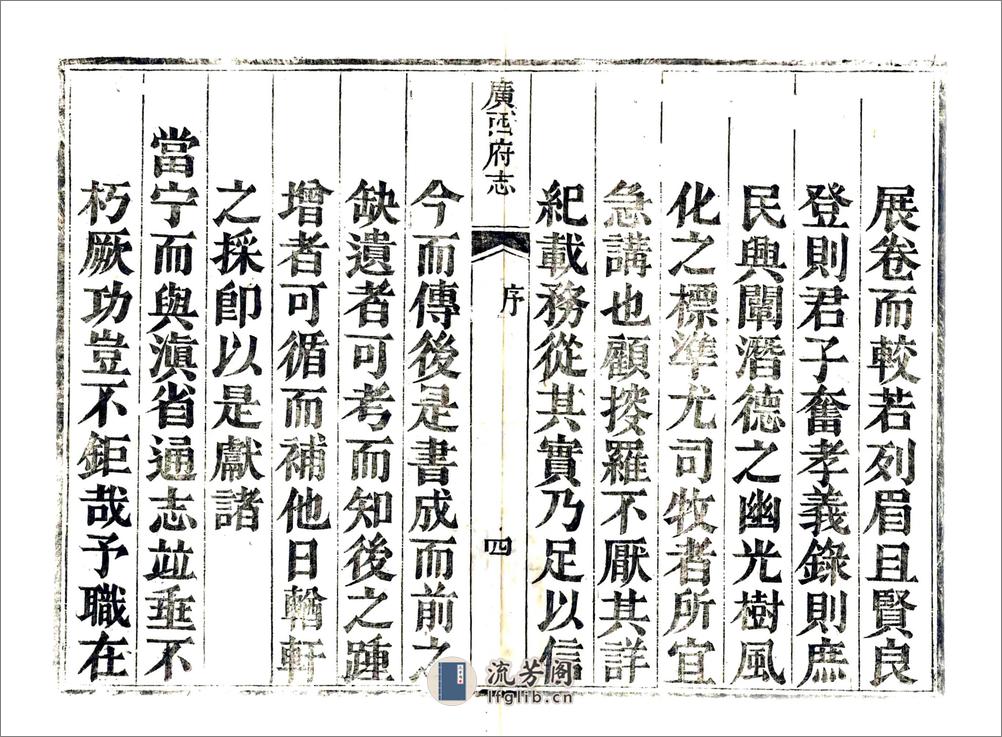 展卷而較若列眉且賢良
登則君子奮孝義錄則庶
民興闡潛德之幽光樹風
化之標準尤司牧者所宜
急講也顧搜羅不厭其詳
紀載務從其實乃足以信
廣西府志 序 四
今而傳後是書成而前之
缺遺者可考而知後之踵
增者可循而補他日輶軒
之採卽以是獻諸
當宁而與滇省通志竝垂不
朽厥功豈不鉅哉予職在
流芳阁
lfglib.cn